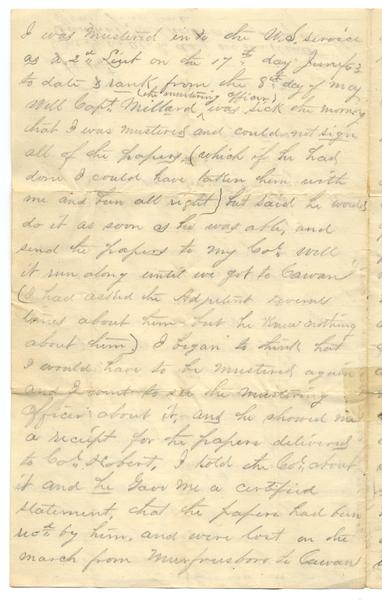 I was mustered in to the U.S. service
as a 2nd Lieut on the 17th day June/63
to date & rank from the 8th day of May
(the mustering officer)
Well Capt. Millard was sick the morning
that I was mustered and could not sign
all of the papers, (which if he had
done I could have taken them with
me and been all right) but said he would
do it as soon as he was able, and
send the papers to my Col. Well
it run along until we got to Cowan
(I had asked the Adjutent several
times about them but he knew nothing
about them) I began to think that
I would have to be mustered again
and I went to see the mustering
Officer about it, and he showed me
a receipt for the papers delivered
to Col. Hobert, I told the Col. about
it and he Gave me a certified
statement, that the papers had been
recd by him, and were lost on the
march from Murfreesboro to Cowan